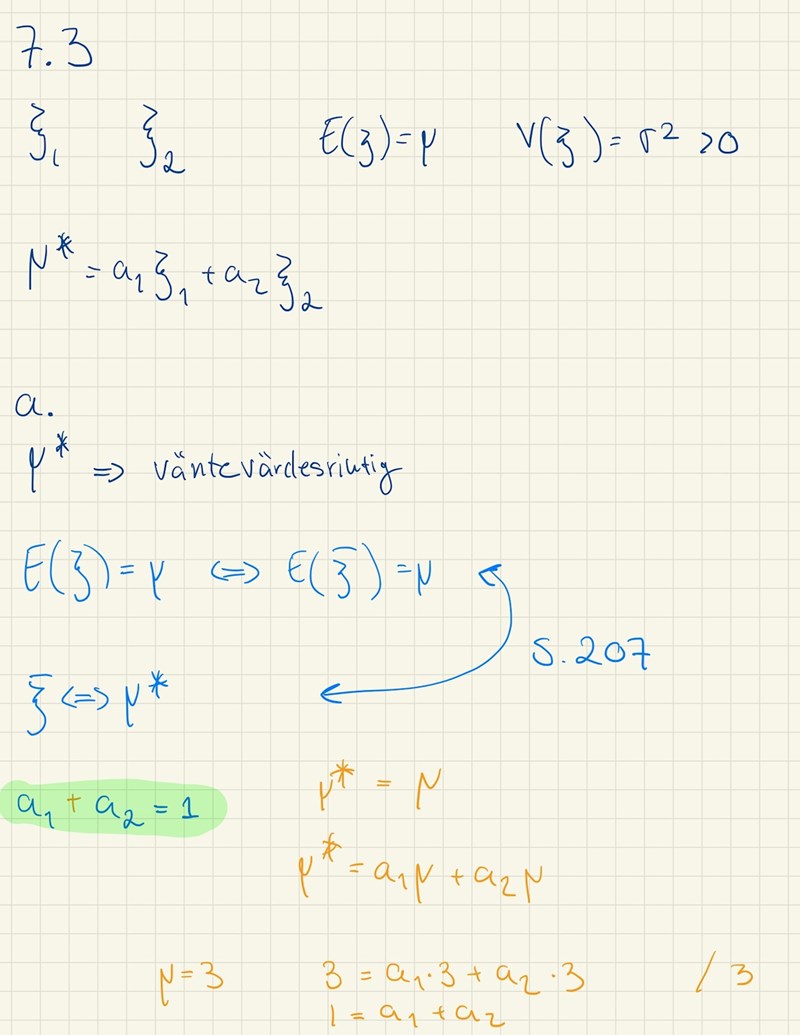 7.3
ξ₁ ξ₂ E(ξ)=μ V(ξ)=σ² >0
μ* = a₁ξ₁ + a₂ξ₂
a.
μ* => väntevärdesriktig
E(ξ)=μ <=> E(ξ̄)=μ
S.207
ξ̄ <=> μ*
μ* = μ
a₁ + a₂ = 1
μ* = a₁μ + a₂μ
μ=3 3 = a₁·3 + a₂·3 / 3
1 = a₁ + a₂